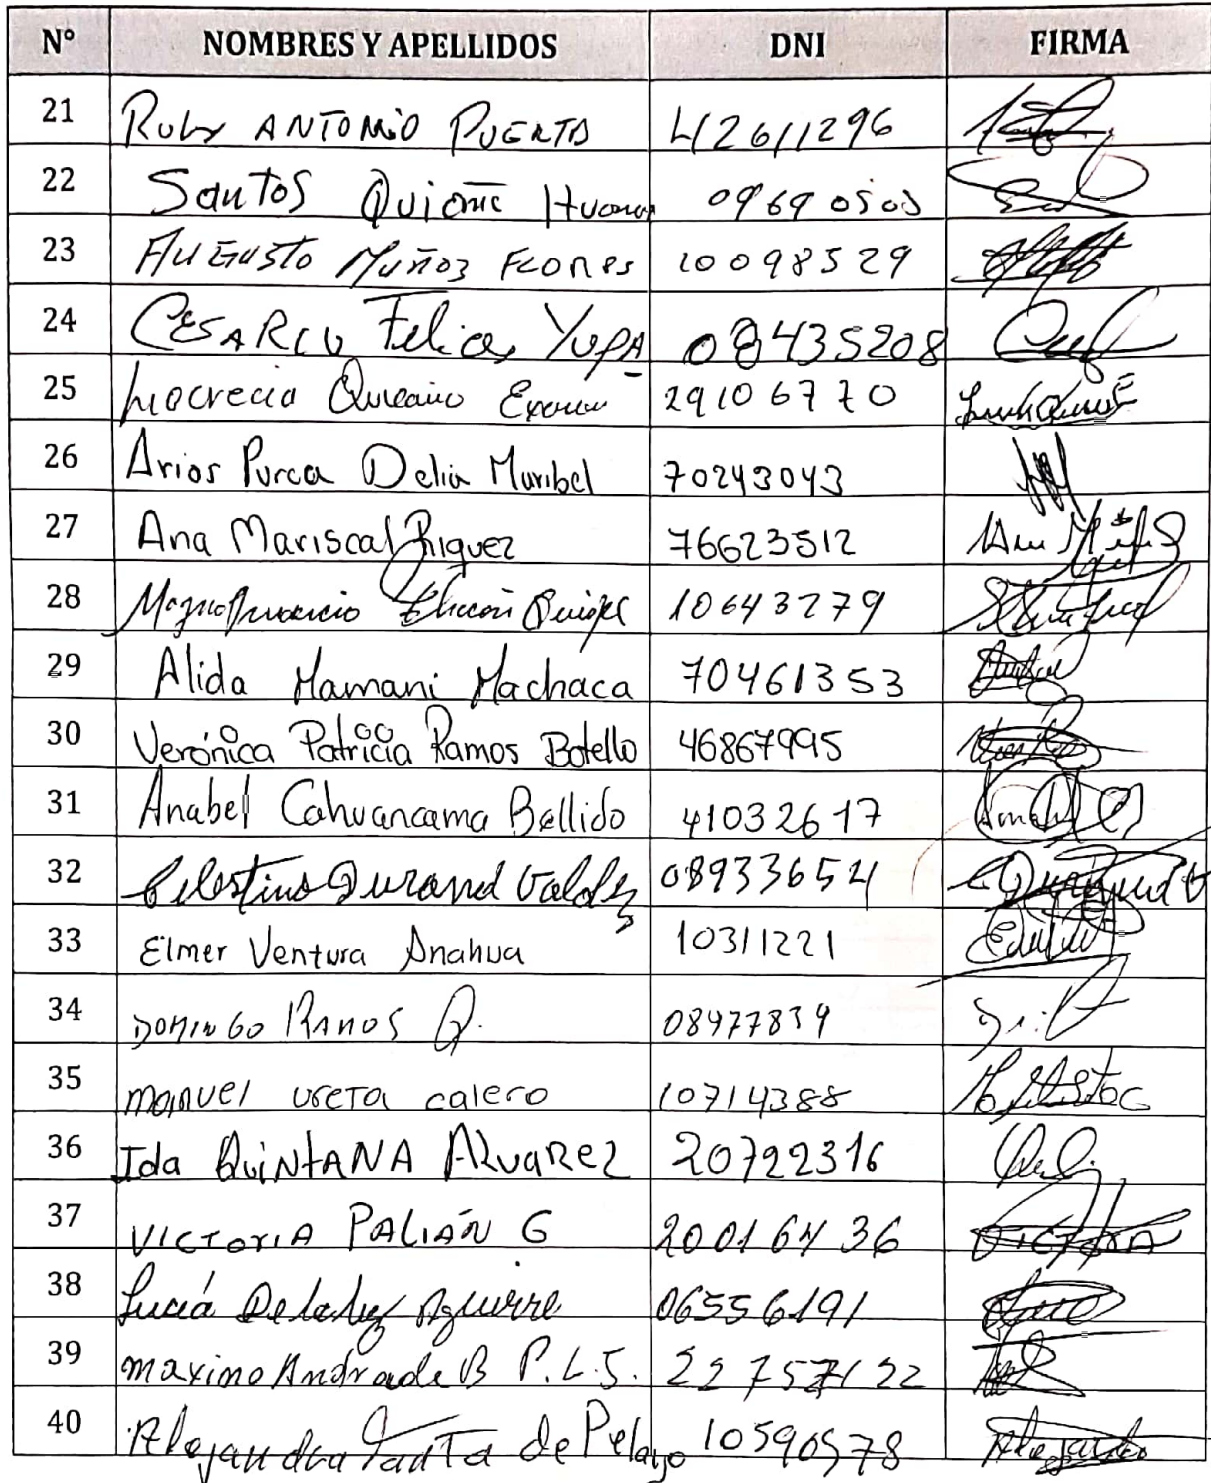 N° NOMBRES Y APELLIDOS DNI FIRMA
21 Ruly ANTONIO PUERTA 42611296
22 Santos Quione Huaman 09690503
23 AUGUSTO Muñoz FLORES 10098529
24 CESAREO Felices YUPA 08435208
25 Lucrecia 29106770
26 Arios Purca Delia Maribel 70243043
27 Ana Mariscal Iriguez 76623512
28 Quispe 10643279
29 Alida Mamani Machaca 70461353
30 Verónica Patricia Ramos Botello 46867995
31 Anabel Cahuancama Bellido 41032617
32 Celestino Durand Valdez 08933654
33 Elmer Ventura Anahua 10311221
34 DOMINGO RAMOS Q. 08477839
35 manuel ureta calero 10714388
36 Ida QUINTANA ALVAREZ 20722316
37 VICTORIA PALIÁN G 20016436 VICTORIA
38 Lucía De la Luz Aguirre 06556191
39 maximo Andrade B P.L.J. 22757122
40 Alejandra Tanta de Pelayo 10590578 Alejandra